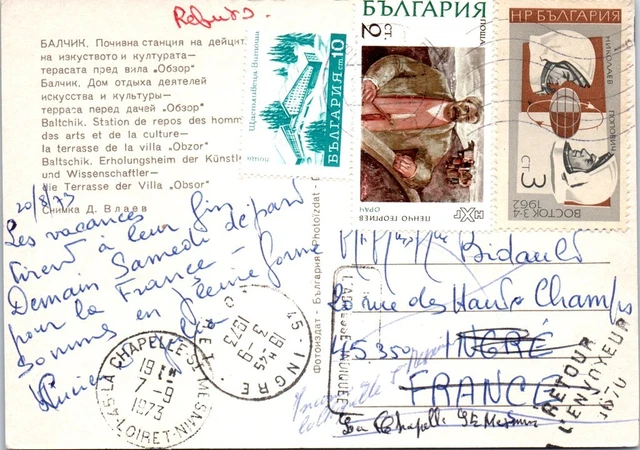 Refusé
БАЛЧИК. Почивна станция на дейцит
на изкуството и културата—
терасата пред вила „Обзор"
Балчик. Дом отдыха деятелей
искусства и культуры—
терраса перед дачей „Обзор"
Baltchik. Station de repos des homm
des arts et de la culture—
la terrasse de la villa „Obzor"
Baltschik. Erholungsheim der Künstl
und Wissenschaftler—
die Terrasse der Villa „Obsor"
Снимка Д. Влаев
20/8/73
Les vacances
tirent à leur fin
Demain Samedi départ
pour la France —
Sommes en pleine forme
Lucien
Фотоиздат - България / Photoizdat -
БЪЛГАРИЯ ст. 10
Щастливеца-Витоша
ПОЩА
БЪЛГАРИЯ
ПОЩА
2 СТ.
ПЕНЧО ГЕОРГИЕВ
ОРАЧ
НХГ
БЪЛГАРИЯ
НИКОЛАЕВ
ПОПОВИЧ
3 СТ
ВОСТОК 3-4
1962
Bidault
20 rue des Hauts Champs
45350 INGRÉ
FRANCE
La Chapelle St Mesmin
L'ADRESSE INDIQUÉE
RETOUR
L'ENVOYEUR
1670
45 - INGRE
19 H 45
3 - 9
1973
LOIRET
45 LA CHAPELLE-ST-MESMIN
19 H
7-9
1973
LOIRET